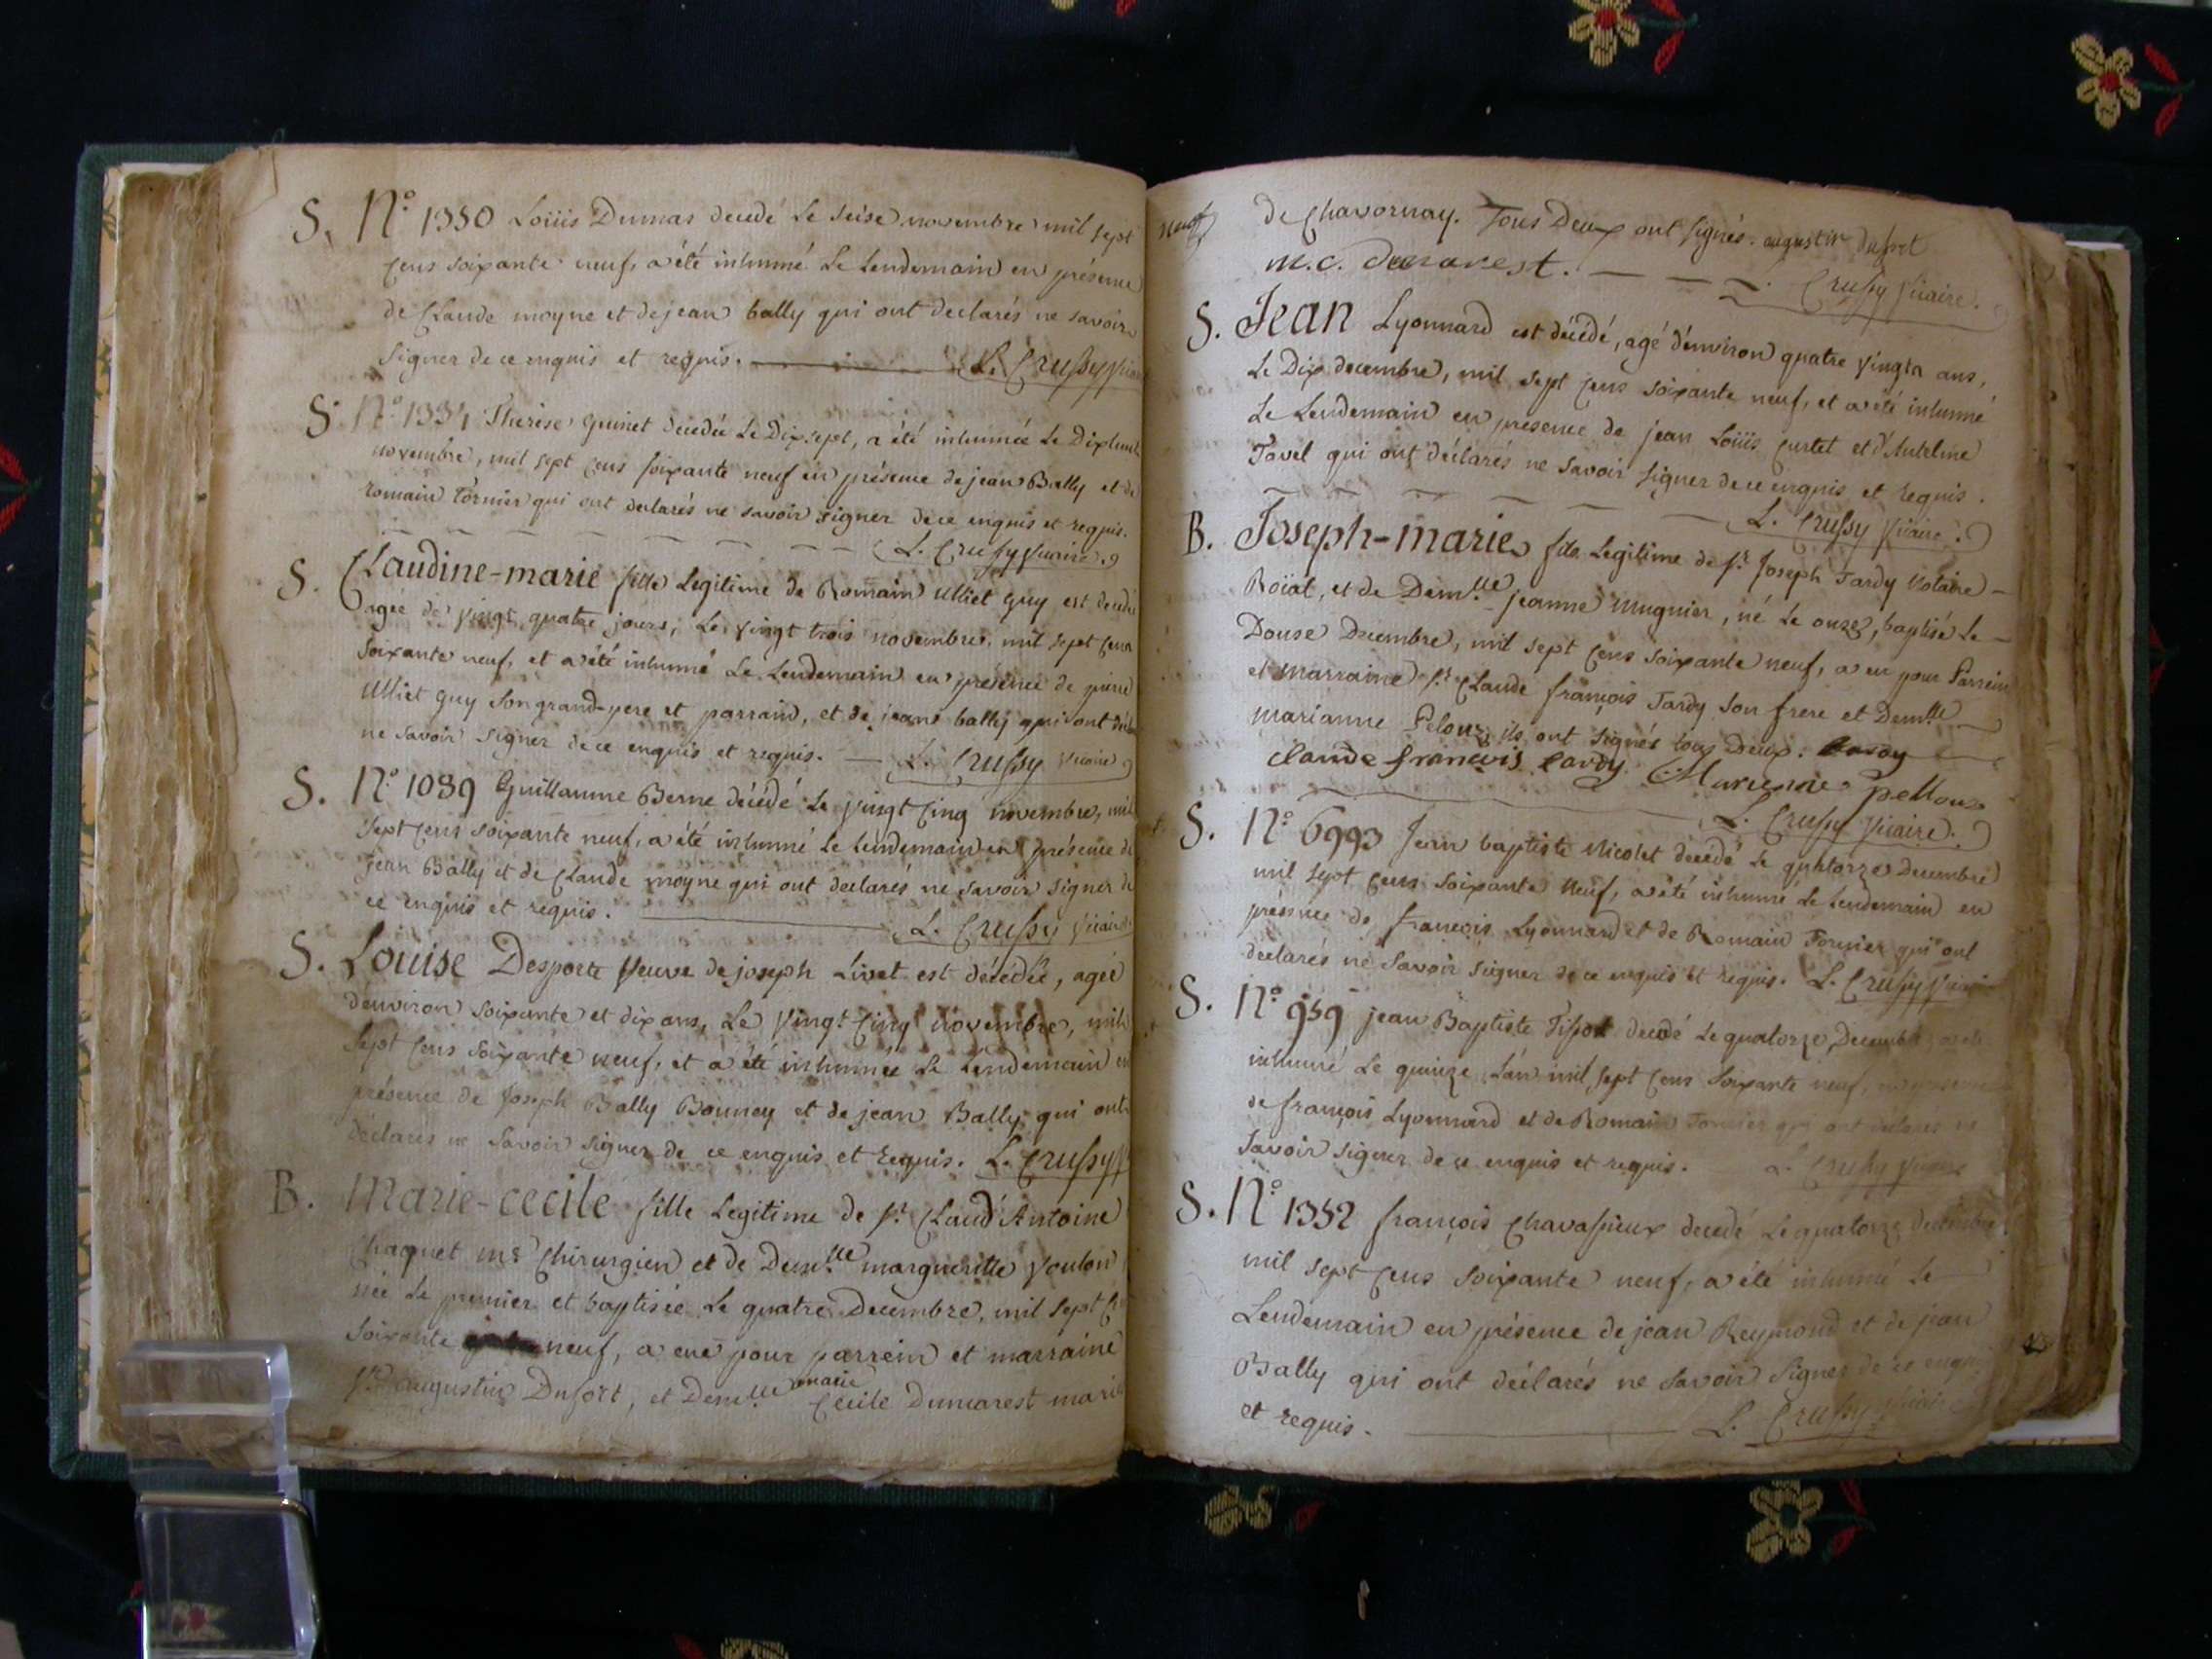 S. N.o 1350 Loüis Dumas decedé le seise novembre mil sept
cens soixante neuf, a été inhumé le lendemain en présence
de Claude moyne et de jean bally qui ont declarés ne savoir
signer de ce enquis et requis. L. Crussy Vicaire
S. N.o 1334 Therese Guinet decedée le Dix sept, a été inhumée le Dixhuit
novembre, mil sept cens soixante neuf en présence de jean Bally et de
romain Fornier qui ont declarés ne savoir signer de ce enquis et requis.
L. Crussy Vicaire.
S. Claudine-marie fille Legitime de Romain Ulliet Guy est decedée
agée de vingt quatre jours, le vingt trois novembre, mil sept cens
soixante neuf, et a été inhumé le Lendemain en présence de pierre
Ulliet guy son grand-pere et parrain, et de jean bally qui ont
ne savoir signer de ce enquis et requis. L. Crussy Vicaire
S. N.o 1089 Guillaume Berne décédé le vingt Cinq novembre, mil
sept cens soixante neuf, a été inhumé le lendemain en présence de
jean Bally et de Claude moyne qui ont declarés ne savoir signer de
ce enquis et requis. L. Crussy Vicaire
S. Louise Desporte veuve de joseph Livet est décédée, agée
d'environ soixante et dix ans, Le Vingt Cinq novembre, mil
sept cens soixante neuf, et a été inhumée le Lendemain en
présence de Joseph Bally Bonney et de jean Bally qui ont
déclarés ne savoir signer de ce enquis et requis. L. Crussy
B. Marie-cecile fille Legitime de Sr. Claud'Antoine
Chaquet me Chirurgien et de Demlle margueritte Voulon
née le premier et baptisée le quatre Decembre, mil sept
soixante neuf, a eue pour parrein et marraine
Sr. augustin Dufort, et Demlle marie Cecile Dumarest
de Chavornay. Tous Deux ont signés. augustin dufort
m.c. dumarest. Crussy Vicaire.
S. Jean Lyonnard est décédé, agé d'environ quatre vingts ans,
le Dix decembre, mil sept cens soixante neuf, et a été inhumé
le Lendemain en présence de jean Loüis curtet et d'Antelme
Tavel qui ont déclarés ne savoir signer de ce enquis et requis.
L. Crussy Vicaire.
B. Joseph-marie fils Legitime de Sr. Joseph Tardy Notaire
Roïal, et de Demlle jeanne Mugnier, né le onze, baptisé le
Douse Decembre, mil sept cens soixante neuf, a eu pour Parrein
et marraine Sr. Claude françois Tardy son frere et Demlle
marianne Pelouz, ils ont signés tous Deux.
Claude francois tardy. Marienne pellouz
L. Crussy Vicaire.
S. N.o 6993 Jean baptiste Nicolet decedé le quatorze Decembre
mil sept cens soixante neuf, a été inhumé le lendemain en
présence de françois Lyonnard et de Romain Fornier qui ont
déclarés ne savoir signer de ce enquis et requis. L. Crussy Vicaire
S. N.o 959 jean Baptiste decedé le quatorze Decembre a été
inhumé le quinze l'an mil sept cens soixante neuf, en présence
de françois Lyonnard et de Romain Fornier qui ont declarés ne
savoir signer de ce enquis et requis. L. Crussy Vicaire
S. N.o 1352 françois Chavassieux decedé le quatorze decembre
mil sept cens soixante neuf, a été inhumé le
Lendemain en présence de jean Reymond et de jean
Bally qui ont déclarés ne savoir signer de ce enquis
et requis. L. Crussy Vicaire